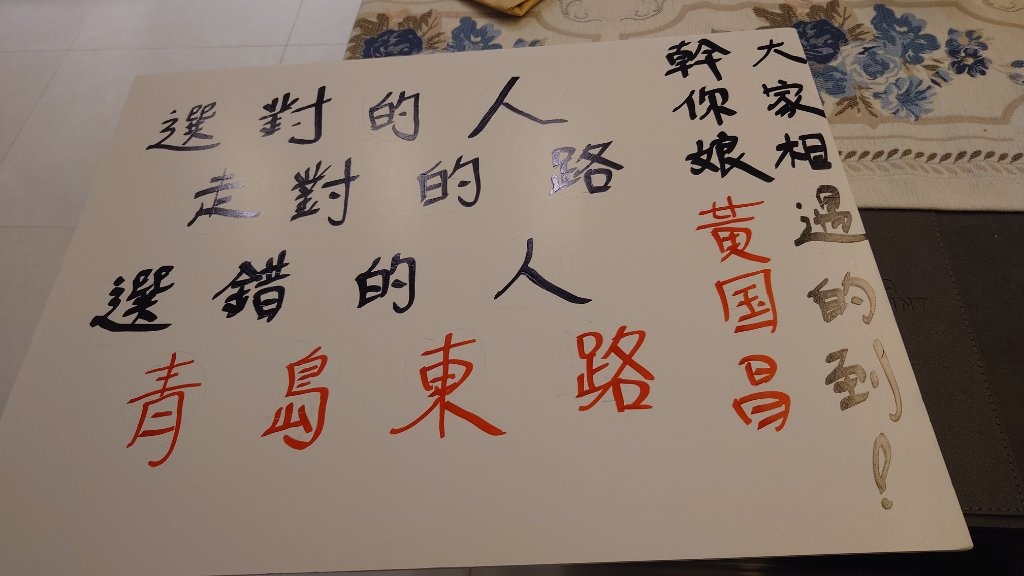 選對的人
走對的路
選錯的人
青島東路
大家相過的到!
幹你娘黃国昌